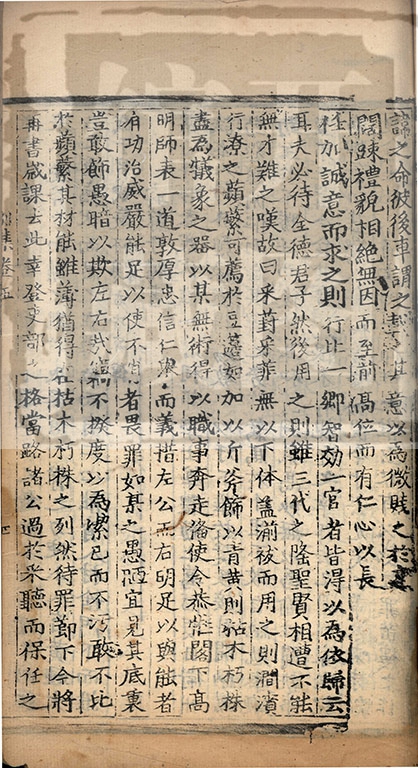 誨之命彼後車謂之載之其意以為微賤之於
闊踈禮貌相絕無因而至前偽位而有仁心以長
徃加誠意而求之則行比一鄉智効一官者皆得以為依歸云
耳夫必待全德君子然後用之則雖三代之隆聖賢相遭不能
無才難之嘆故曰采葑采菲無以下体盖湔祓而用之則澗濱
行潦之蘋蘩可薦於豆籩如加以斤斧飾以青黄則枯木朽株
盡為犧象之器以某無術得以職事奔走備使令恭惟閤下高
明師表一道敦厚忠信仁而義揩左公而右明足以與能者
有功治威嚴能足以使不肖者畏罪如某之愚陋宜見其底裏
豈敢飾愚暗以欺左右哉不揆度以為潔已而不汚敢不比
於蘋蘩其材能雖薄猶得在枯木朽株之列然待罪節下今將
再書歳課去此幸登吏部之格當路諸公過於采聽而保任之